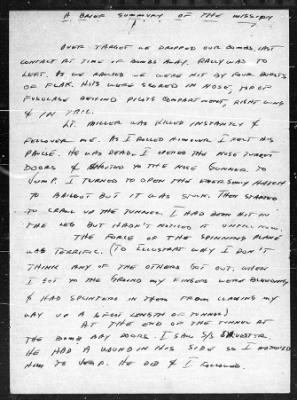 A BRIEF SUMMARY OF THE MISSION
OVER TARGET WE DROPPED OUR BOMBS, LAST
CONTACT AT TIME OF BOMBS AWAY. RALLY WAS TO
LEFT. AS WE RALLIED WE WERE HIT BY FOUR BURSTS
OF FLAK. HITS WERE SCORED IN NOSE, TOP OF
FUSELAGE BEHIND PILOTS COMPARTMENT, RIGHT WING
& IN TAIL.
LT. MILLER WAS KILLED INSTANTLY &
FELL OVER ME. AS I ROLLED HIM OVER I FELT HIS
PULSE. HE WAS DEAD. I OPENED THE NOSE TURRET
DOORS & TO THE NOSE GUNNER TO
JUMP. I TURNED TO OPEN THE EMERGENCY HATCH
TO BAILOUT BUT IT WAS STUCK. THEN STARTED
TO CRAWL UP THE TUNNEL. I HAD BEEN HIT IN
THE LEG BUT HADN'T NOTICED IT UNTIL NOW.
THE FORCE OF THE SPINNING PLANE
WAS TERRIFIC. (TO ILLUSTRATE WHY I DON'T
THINK ANY OF THE OTHERS GOT OUT, WHEN
I GOT TO THE GROUND MY FINGERS WERE BLEEDING
& HAD SPLINTERS IN THEM FROM CLAWING MY
WAY UP A 6 FOOT LENGTH OF TUNNEL)
AT THE END OF THE TUNNEL AT
THE BOMB BAY DOORS. I SAW S/S
HE HAD A WOUND IN HIS SIDE SO I MOTIONED
HIM TO JUMP. HE DID & I FOLLOWED.